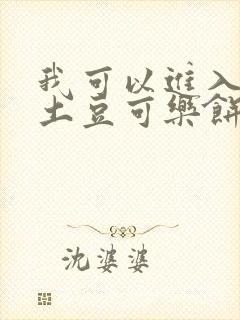 我可以进入
土豆可樂餅
沈婆婆